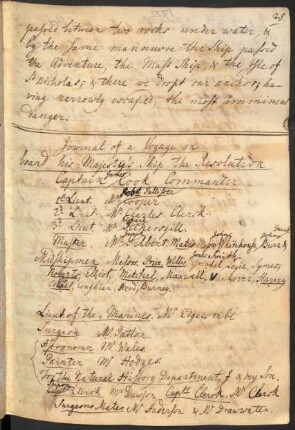 25
passed between two rocks under water, &
by the same manoeuvre the Ship passed
the Adventure, the Mass Ship & the Isle of
St Nicholas; & there we dropt our anchor, ha-
ving narrowly escaped the most imminent
danger.
Journal of a Voyage on
board his Majesty's Ship the Resolution
Captain James Cook Commander
1st Lieut Robt Palliser Cooper
2d Lieut Mr Charles Clerk
3d Lieut Mr Pickersgill
Master Mr Gilbert, Mates
Midshipmen Price, Willis
Roberts, Elliot, Mitchel, Maxwell, Vancouver, Harvey
Coghlan, Hood, Burney
Lieut of the Marines, Mr Edgecumbe
Surgeon Mr Patton
Astronomer Mr Wales
Painter Mr Hodges
For the Natural History Department, J & my Son.
Clerk Mr Dawson Capts Clerk, Mr Clerk
Surgeons Mates Mr Anderson & Mr Drawwater.